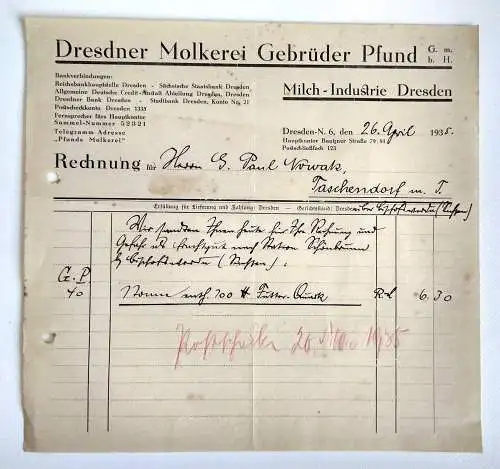 Dresdner Molkerei Gebrüder Pfund G. m. b. H.
Bankverbindungen:
Reichsbankhauptstelle Dresden - Sächsische Staatsbank Dresden
Allgemeine Deutsche Credit-Anstalt Abteilung Dresden, Dresden
Dresdner Bank Dresden - Stadtbank Dresden, Konto Ng. 21
Postscheckkonto Dresden 1335
Fernsprecher fürs Hauptkontor
Sammel-Nummer 52321
Telegramm-Adresse
„Pfunds Molkerei“
Milch-Industrie Dresden
Dresden-N. 6, den 26. April 1935.
Hauptkontor Bautzner Straße 79
Postschließfach 123
Rechnung für Herrn G. Paul Nowak,
Taschendorf m. T.
über Bischofswerda (Sachsen)
Erfüllung für Lieferung und Zahlung: Dresden - Gerichtsstand: Dresden
Wir sandten Ihnen heute für Ihre Rechnung und
Gefahr als Frachtgut nach Station Schönbrunn
b/ Bischofswerda (Sachsen).
G. P.
40 Tonne enth. 100 Futter-Quark 6.30
20. 1935